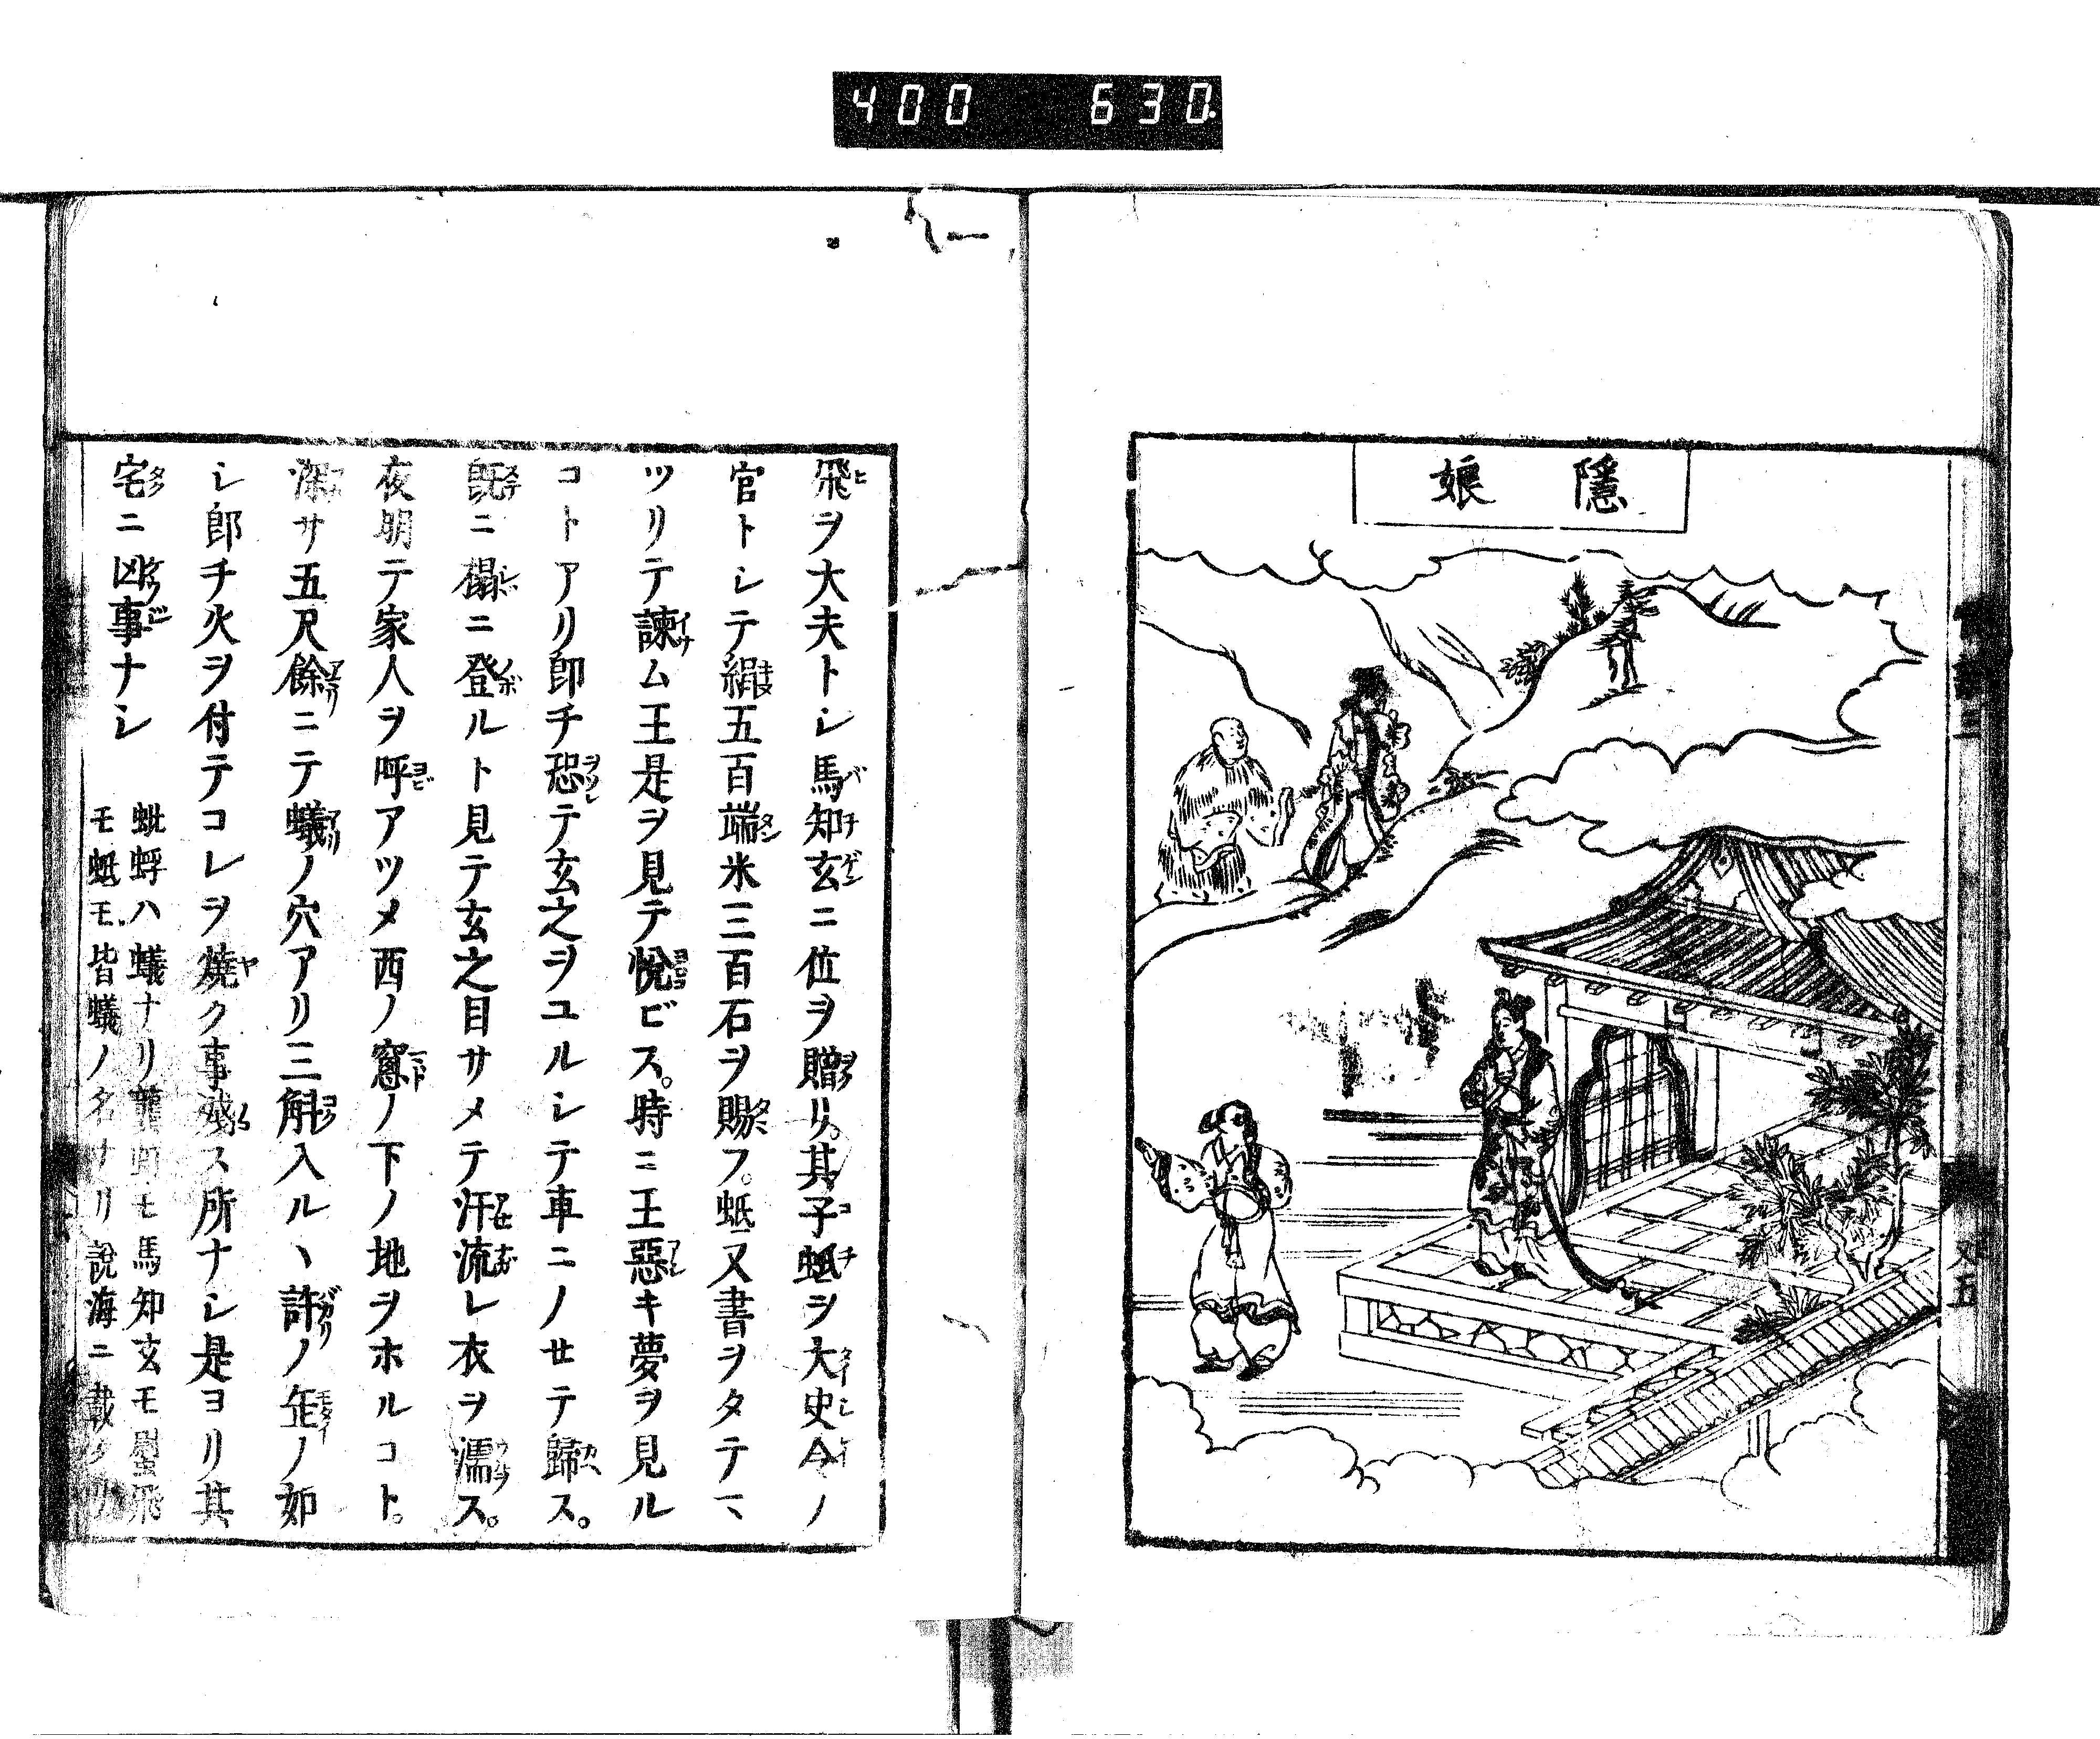 400 630
隱娘
又五
飛ヲ大夫トシ馬知玄ニ位ヲ贈リ。其子蚳ヲ大史令ノ
官トシテ絹五百端米三百石ヲ賜フ。蚳又書ヲタテマ
ツリテ諫ム王是ヲ見テ悅ビス。時ニ王惡キ夢ヲ見ル
コトアリ卽チ恐テ玄之ヲユルシテ車ニノセテ歸ス。
既ニ榻ニ登ルト見テ玄之目サメテ汗流レ衣ヲ濡ス。
夜明テ家人ヲ呼アツメ西ノ窓ノ下ノ地ヲホルコト。
深サ五尺餘ニテ蟻ノ穴アリ三斛入ルヽ許ノ缶ノ如
シ郎チ火ヲ付テコレヲ燒ク事殘ス所ナシ是ヨリ其
宅ニ凶事ナシ
蚍蜉ハ蟻ナリ モ馬知玄モ蠶飛
モ蚳モ皆蟻ノ名ナリ說海ニ載タ